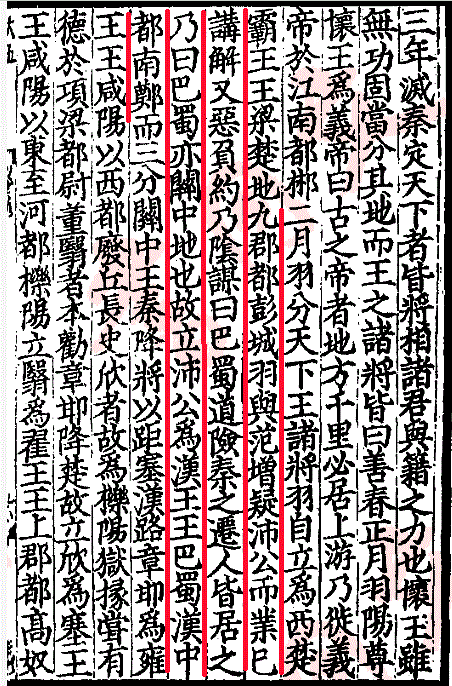 三年滅秦定天下者皆將相諸君與籍之力也懷王雖
無功固當分其地而王之諸將皆曰善春正月羽陽尊
懷王爲義帝曰古之帝者地方千里必居上游乃徙義
帝於江南都郴二月羽分天下王諸將羽自立爲西楚
霸王王梁楚地九郡都彭城羽與范增疑沛公而業已
講解又惡負約乃陰謀曰巴蜀道險秦之遷人皆居之
乃曰巴蜀亦關中地也故立沛公爲漢王王巴蜀漢中
都南鄭而三分關中王秦降將以距塞漢路章邯爲雍
王王咸陽以西都廢丘長史欣者故爲櫟陽獄掾嘗有
德於項梁都尉董翳者本勸章邯降楚故立欣爲塞王
王咸陽以東至河都櫟陽立翳爲翟王王上郡都高奴